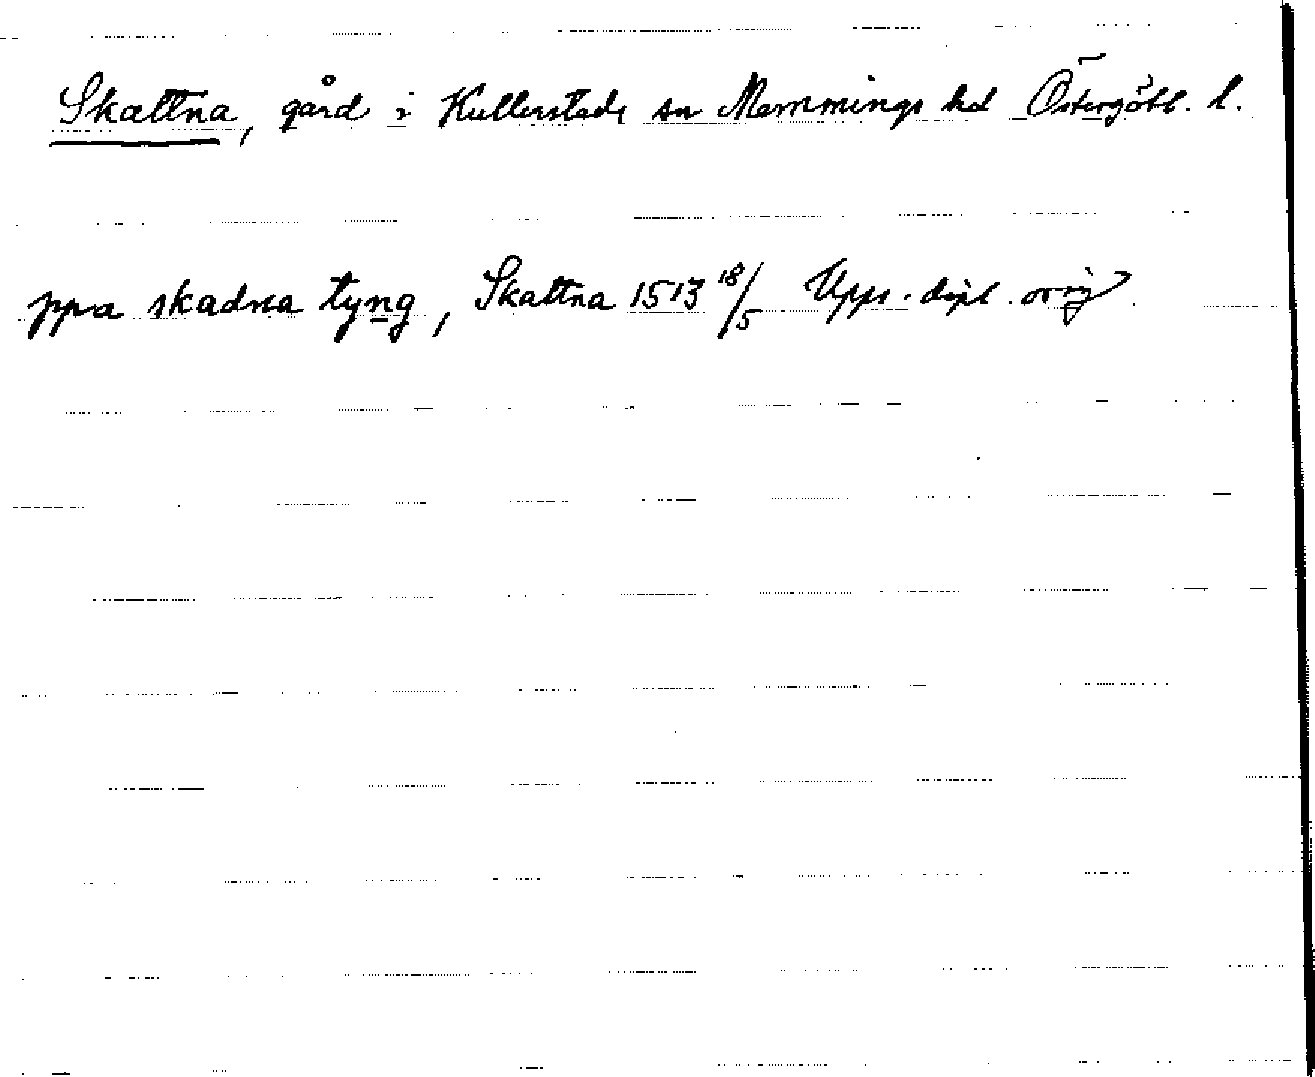 Skattna, gård i Kullerstads sn Memmings hd Östergötl. l.
ppa skadna tyng, Skattna 1513 18/5 Upps. dipl. orig.